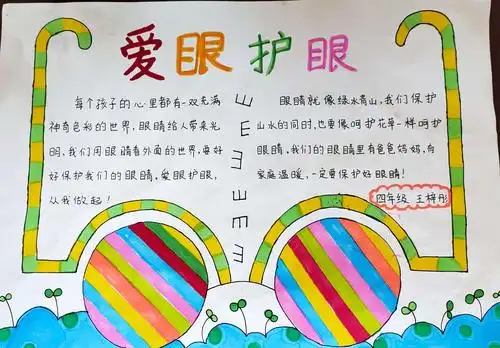 爱眼护眼
每个孩子的心里都有一双充满
神奇色彩的世界，眼睛给人带来光
明，我们用眼睛看外面的世界，要好
好保护我们的眼睛，爱眼护眼，
从我做起！
山
E
ヨ
山
ヨ
E
E
眼睛就像绿水青山，我们保护
山水的同时，也要像呵护花草一样呵护
眼睛，我们的眼睛里有爸爸妈妈，有
家庭温暖，一定要保护好眼睛！
四年级 王梓彤